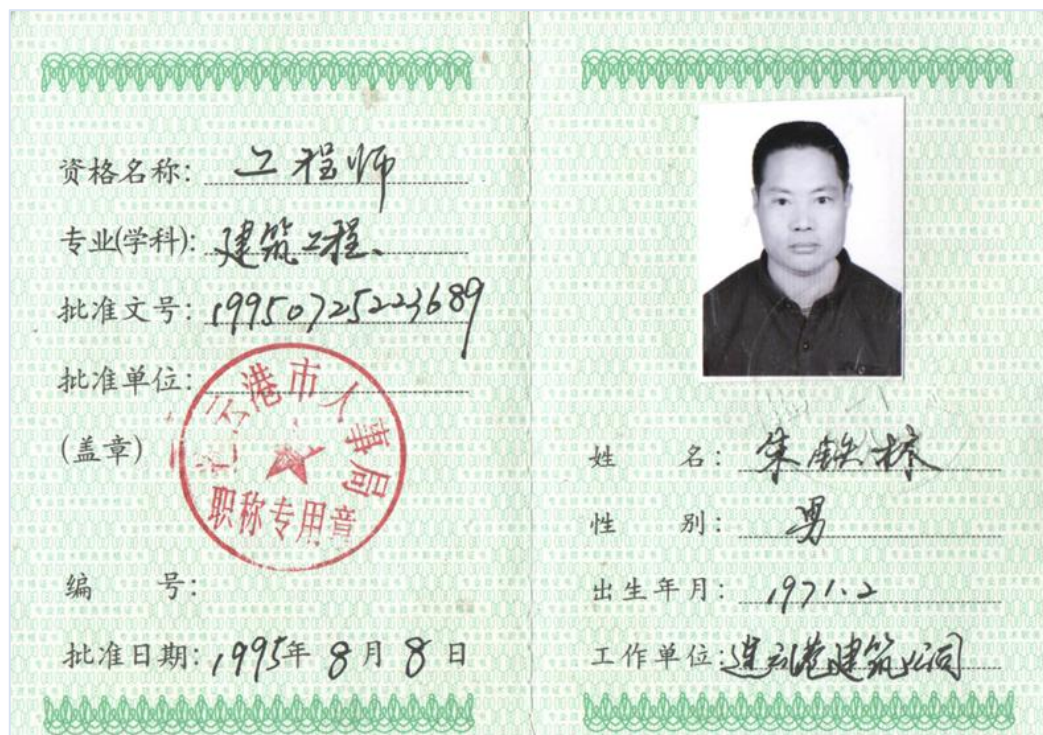 资格名称: 工程师
专业(学科): 建筑工程、
批准文号: 19950725223689
批准单位:
(盖章)
连云港市人事局
职称专用章
编 号:
批准日期: 1995年 8月 8日
姓 名: 朱铁林
性 别: 男
出生年月: 1971.2
工作单位: 连云港建筑公司